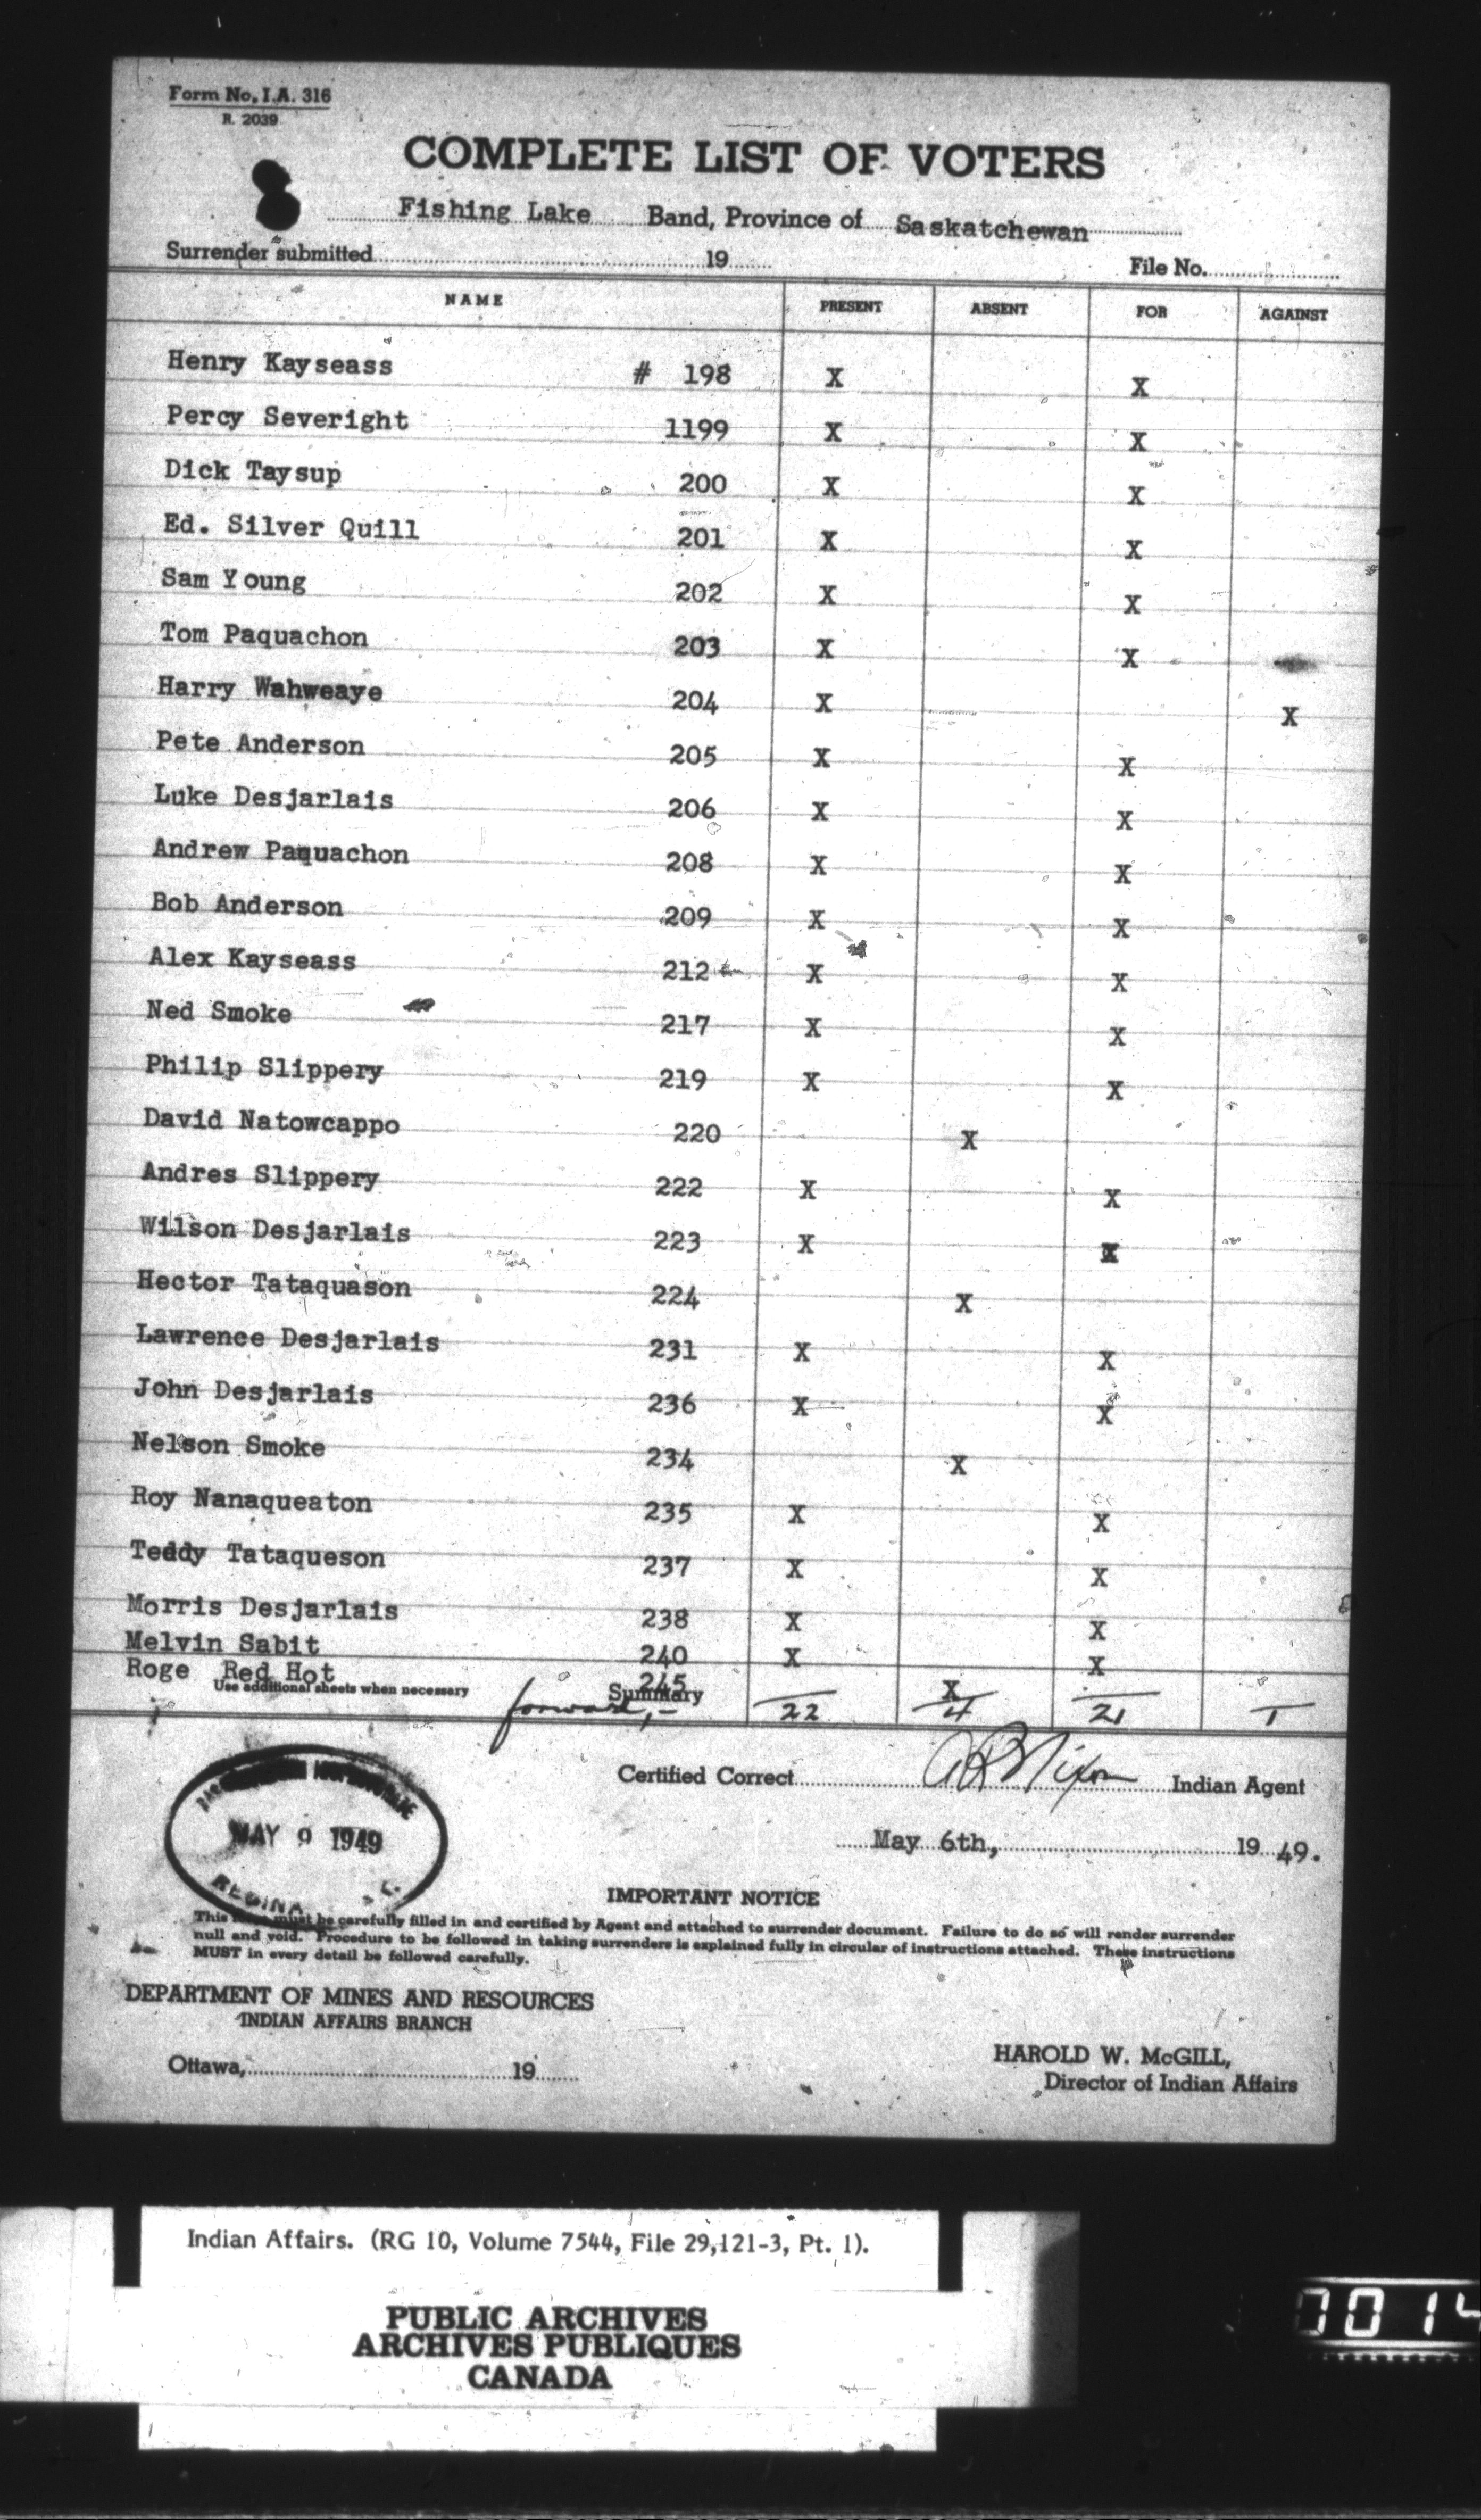 Form No. I.A. 316
R. 2039
COMPLETE LIST OF VOTERS
Fishing Lake Band, Province of Saskatchewan
Surrender submitted 19 File No.
NAME PRESENT ABSENT FOR AGAINST
Henry Kayseass # 198 X X
Percy Severight 1199 X X
Dick Taysup 200 X X
Ed. Silver Quill 201 X X
Sam Young 202 X X
Tom Paquachon 203 X X
Harry Wahweaye 204 X X
Pete Anderson 205 X X
Luke Desjarlais 206 X X
Andrew Paquachon 208 X X
Bob Anderson 209 X X
Alex Kayseass 212 X X
Ned Smoke 217 X X
Philip Slippery 219 X X
David Natowcappo 220 X
Andres Slippery 222 X X
Wilson Desjarlais 223 X X
Hector Tataquason 224 X
Lawrence Desjarlais 231 X X
John Desjarlais 236 X X
Nelson Smoke 234 X
Roy Nanaqueaton 235 X X
Teddy Tataqueson 237 X X
Morris Desjarlais 238 X X
Melvin Sabit 240 X X
Roge Red Hot 245 X
Use additional sheets when necessary Summary
forward,- 22 4 21 1
Certified Correct A R Nixon Indian Agent
MAY 9 1949
REGINA
May 6th, 19 49.
IMPORTANT NOTICE
This must be carefully filled in and certified by Agent and attached to surrender document. Failure to do so will render surrender
null and void. Procedure to be followed in taking surrenders is explained fully in circular of instructions attached. These instructions
MUST in every detail be followed carefully.
DEPARTMENT OF MINES AND RESOURCES
INDIAN AFFAIRS BRANCH
Ottawa, 19
HAROLD W. McGILL,
Director of Indian Affairs
Indian Affairs. (RG 10, Volume 7544, File 29,121-3, Pt. 1).
PUBLIC ARCHIVES
ARCHIVES PUBLIQUES
CANADA